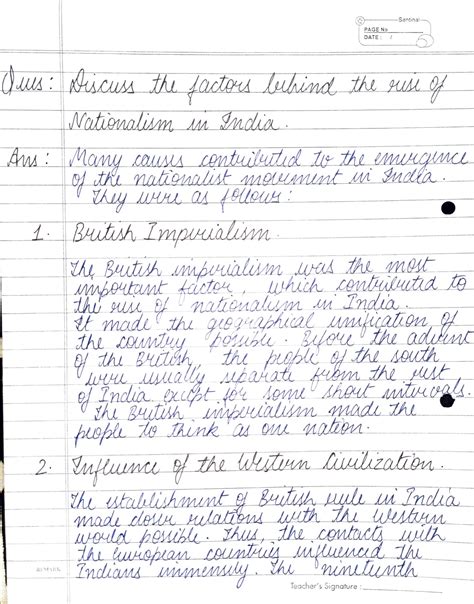 Sentinal
PAGE No
DATE: /
Ques: Discuss the factors behind the rise of
Nationalism in India.
Ans: Many causes contributed to the emergence
of the nationalist movement in India.
They were as follows:
1. British Imperialism.
The British imperialism was the most
important factor, which contributed to
the rise of nationalism in India.
It made the geographical unification of
the country possible. Before the advent
of the British, the people of the south
were usually separate from the rest
of India except for some short intervals.
The British imperialism made the
people to think as one nation.
2. Influence of the Western Civilization.
The establishment of British rule in India
made closer relations with the Western
world possible. Thus, the contacts with
the European countries influenced the
Indians immensely. The nineteenth
Teacher's Signature: